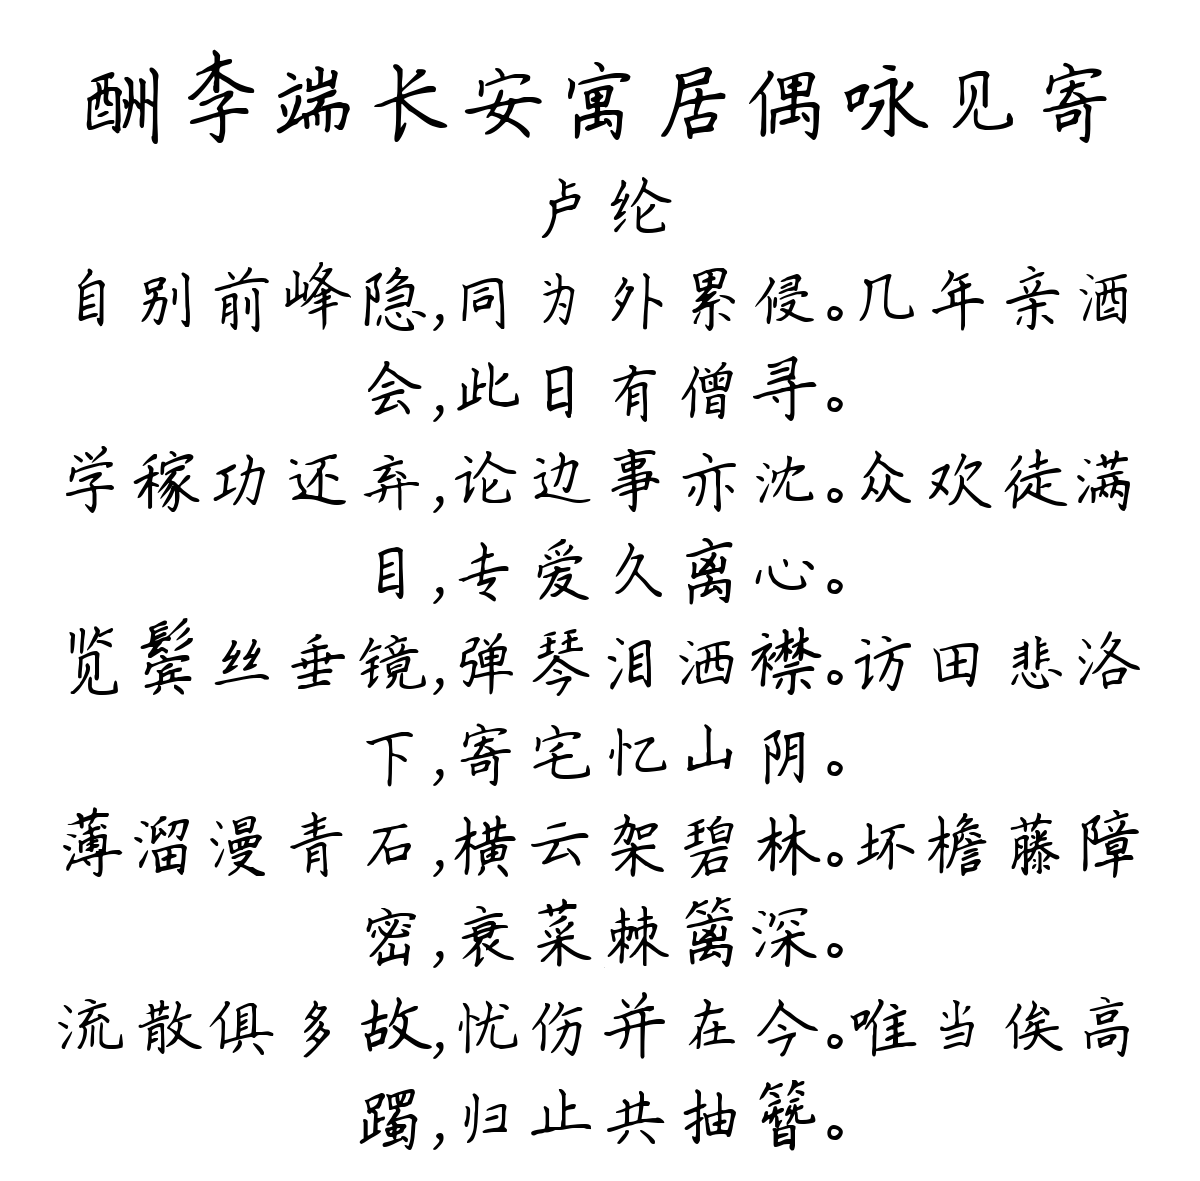 酬李端长安寓居偶咏见寄
卢纶
自别前峰隐,同为外累侵。几年亲酒
会,此日有僧寻。
学稼功还弃,论边事亦沈。众欢徒满
目,专爱久离心。
览鬓丝垂镜,弹琴泪洒襟。访田悲洛
下,寄宅忆山阴。
薄溜漫青石,横云架碧林。坏檐藤障
密,衰菜棘篱深。
流散俱多故,忧伤并在今。唯当俟高
躅,归止共抽簪。